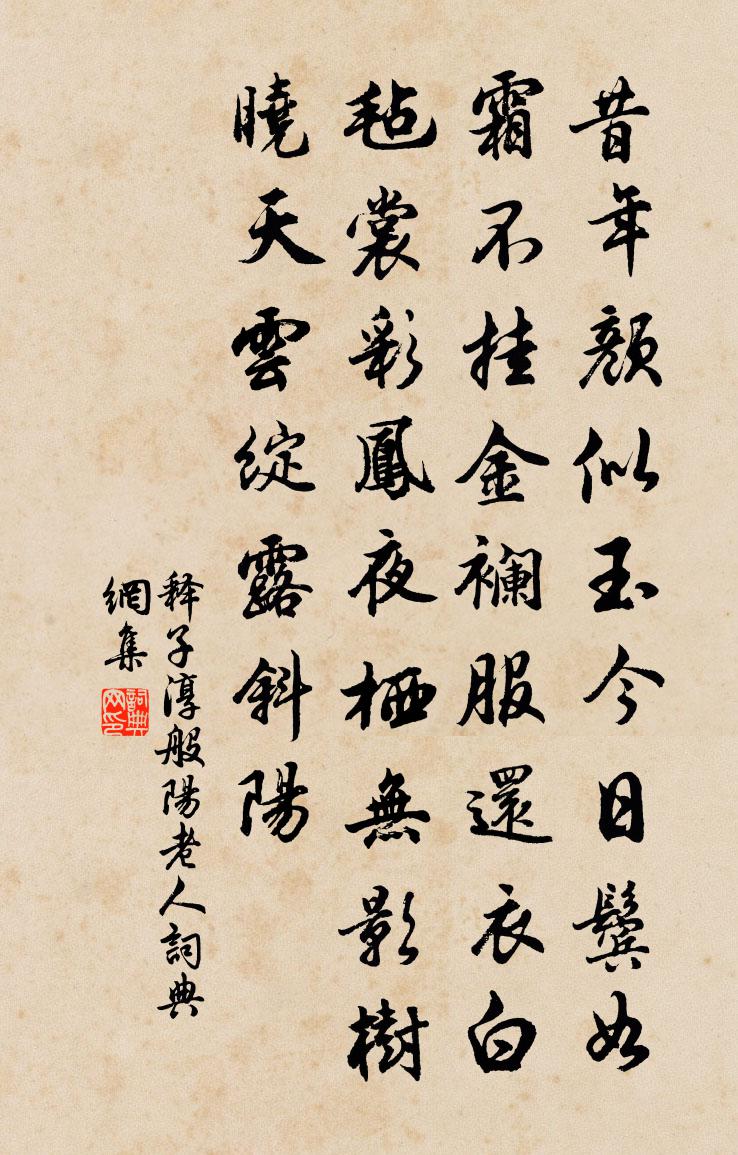 昔年顏似玉今日鬢如
霜不挂金襴服還衣白
毡裳彩鳳夜栖無影樹
曉天雲綻露斜陽
释子淳般陽老人詞典
網集
詞典
网印